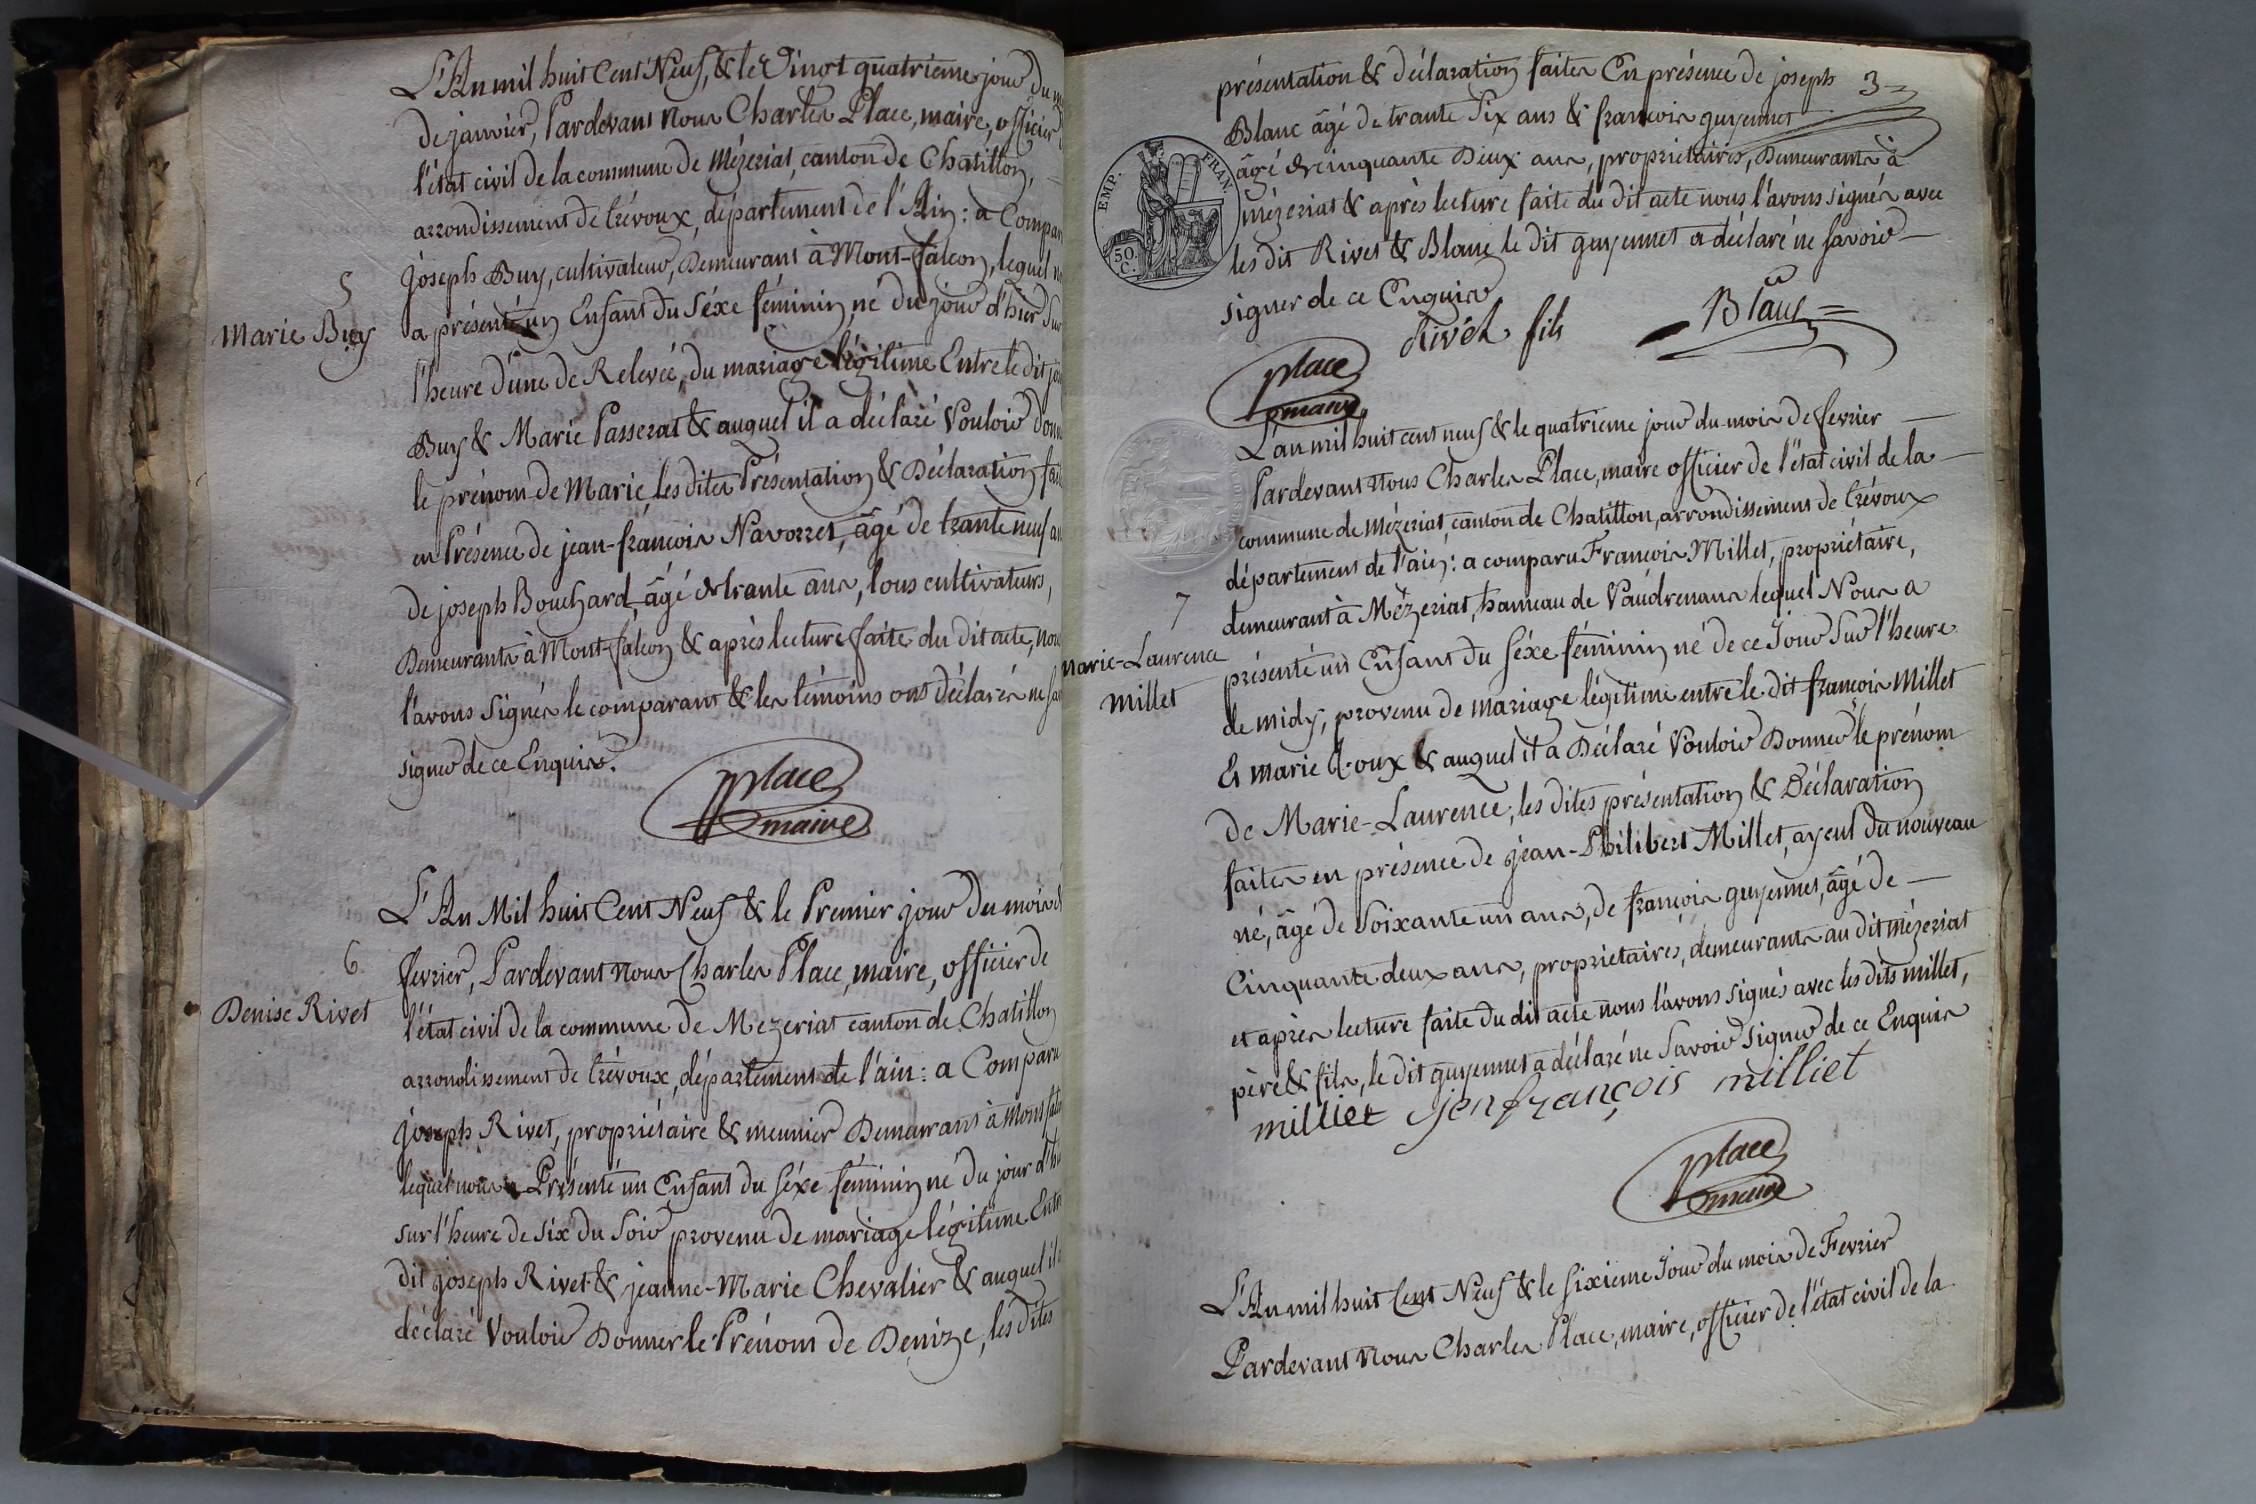 L'An mil huit Cent Neuf, & le Vingt quatrieme jour du
de janvier, Pardevant Nous Charles Place, maire, officier
l'état civil de la commune de Mézeriat, canton de Chatillon,
arrondissement de trévoux, département de l'Ain : a Compar
joseph Buy, cultivateur, Demeurant à Mont-falcon, lequel
5
Marie Buy
a présenté un Enfant du Séxe féminin né du jour d'hier Sur
l'heure d'une de Relevée, du mariage légitime Entre le dit
Buy & Marie Passerat & auquel il a déclaré Vouloir Donn
le prénom de Marie, les dites Présentation & Déclaration fai
en Présence de jean-françois Navorret, âgé de trante neuf an
de joseph Bouchard, âgé de trante ans, tous cultivateurs,
Demeurants à Mont-falcon & après lecture faite du dit acte, nou
l'avons Signés le comparant & les témoins ont déclarés ne
signer de ce Enquis.
place
maire
L'An Mil huit Cent Neuf & le Premier jour Du mois
6
fevrier, Pardevant nous Charles Place, maire, officier de
Denise Rivet
l'état civil de la commune de Mezeriat canton de Chatillon
arrondissement de trévoux, département de l'ain : a Comparu
joseph Rivet, propriétaire & meunier Demeurant à Mont
lequel nous a Présenté un Enfant du séxe féminin né Du jour
sur l'heure de six du Soir provenu de mariage légitime Entre
dit joseph Rivet & jeanne-Marie Chevalier & auquel il
déclaré Vouloir Donner le Prénom de Denize, les dites
présentation & déclaration faites En présence de joseph
3
Blanc âgé de trante Six ans & françois guyennet
âgé de cinquante Deux ans, propriétaires, Demeurants à
mézeriat & après lecture faite du dit acte nous l'avons signés avec
les dit Rivet & Blanc le dit guyennet a déclaré ne savoir
signer de ce Enquis
EMP. FRAN.
50. C.
Rivet fils
Blanc
place
maire
L'an mil huit cent neuf & le quatrieme jour du mois de fevrier
Pardevant Nous Charles Place, maire officier de l'état civil de la
commune de Mézeriat, canton de Chatillon, arrondissement de trévoux
département de l'ain : a comparu François Millet, propriétaire,
7
demeurant à Mézeriat, hameau de Vaudrenans lequel Nous a
Marie-Laurence
Millet
présenté un Enfant du séxe féminin né de ce Jour Sur l'heure
de midy, provenu de mariage légitime entre le dit françois Millet
Et marie Roux & auquel il a Déclaré Vouloir Donner le prénom
de Marie-Laurence, les dites présentation & Déclaration
faites en présence de jean-Philibert Millet, ayeul du nouveau
né, âgé de Soixante un ans, de françois guyennet, âgé de
Cinquante deux ans, propriétaires, demeurants au dit mézeriat
et après lecture faite du dit acte nous l'avons signés avec les dits millet,
père & fils, le dit guyennet a déclaré ne Savoir signer de ce Enquis
milliet jenfrançois milliet
place
maire
L'An mil huit Cent Neuf & le Sixieme Jour du mois de Fevrier
Pardevant Nous Charles Place, maire, officier de l'état civil de la